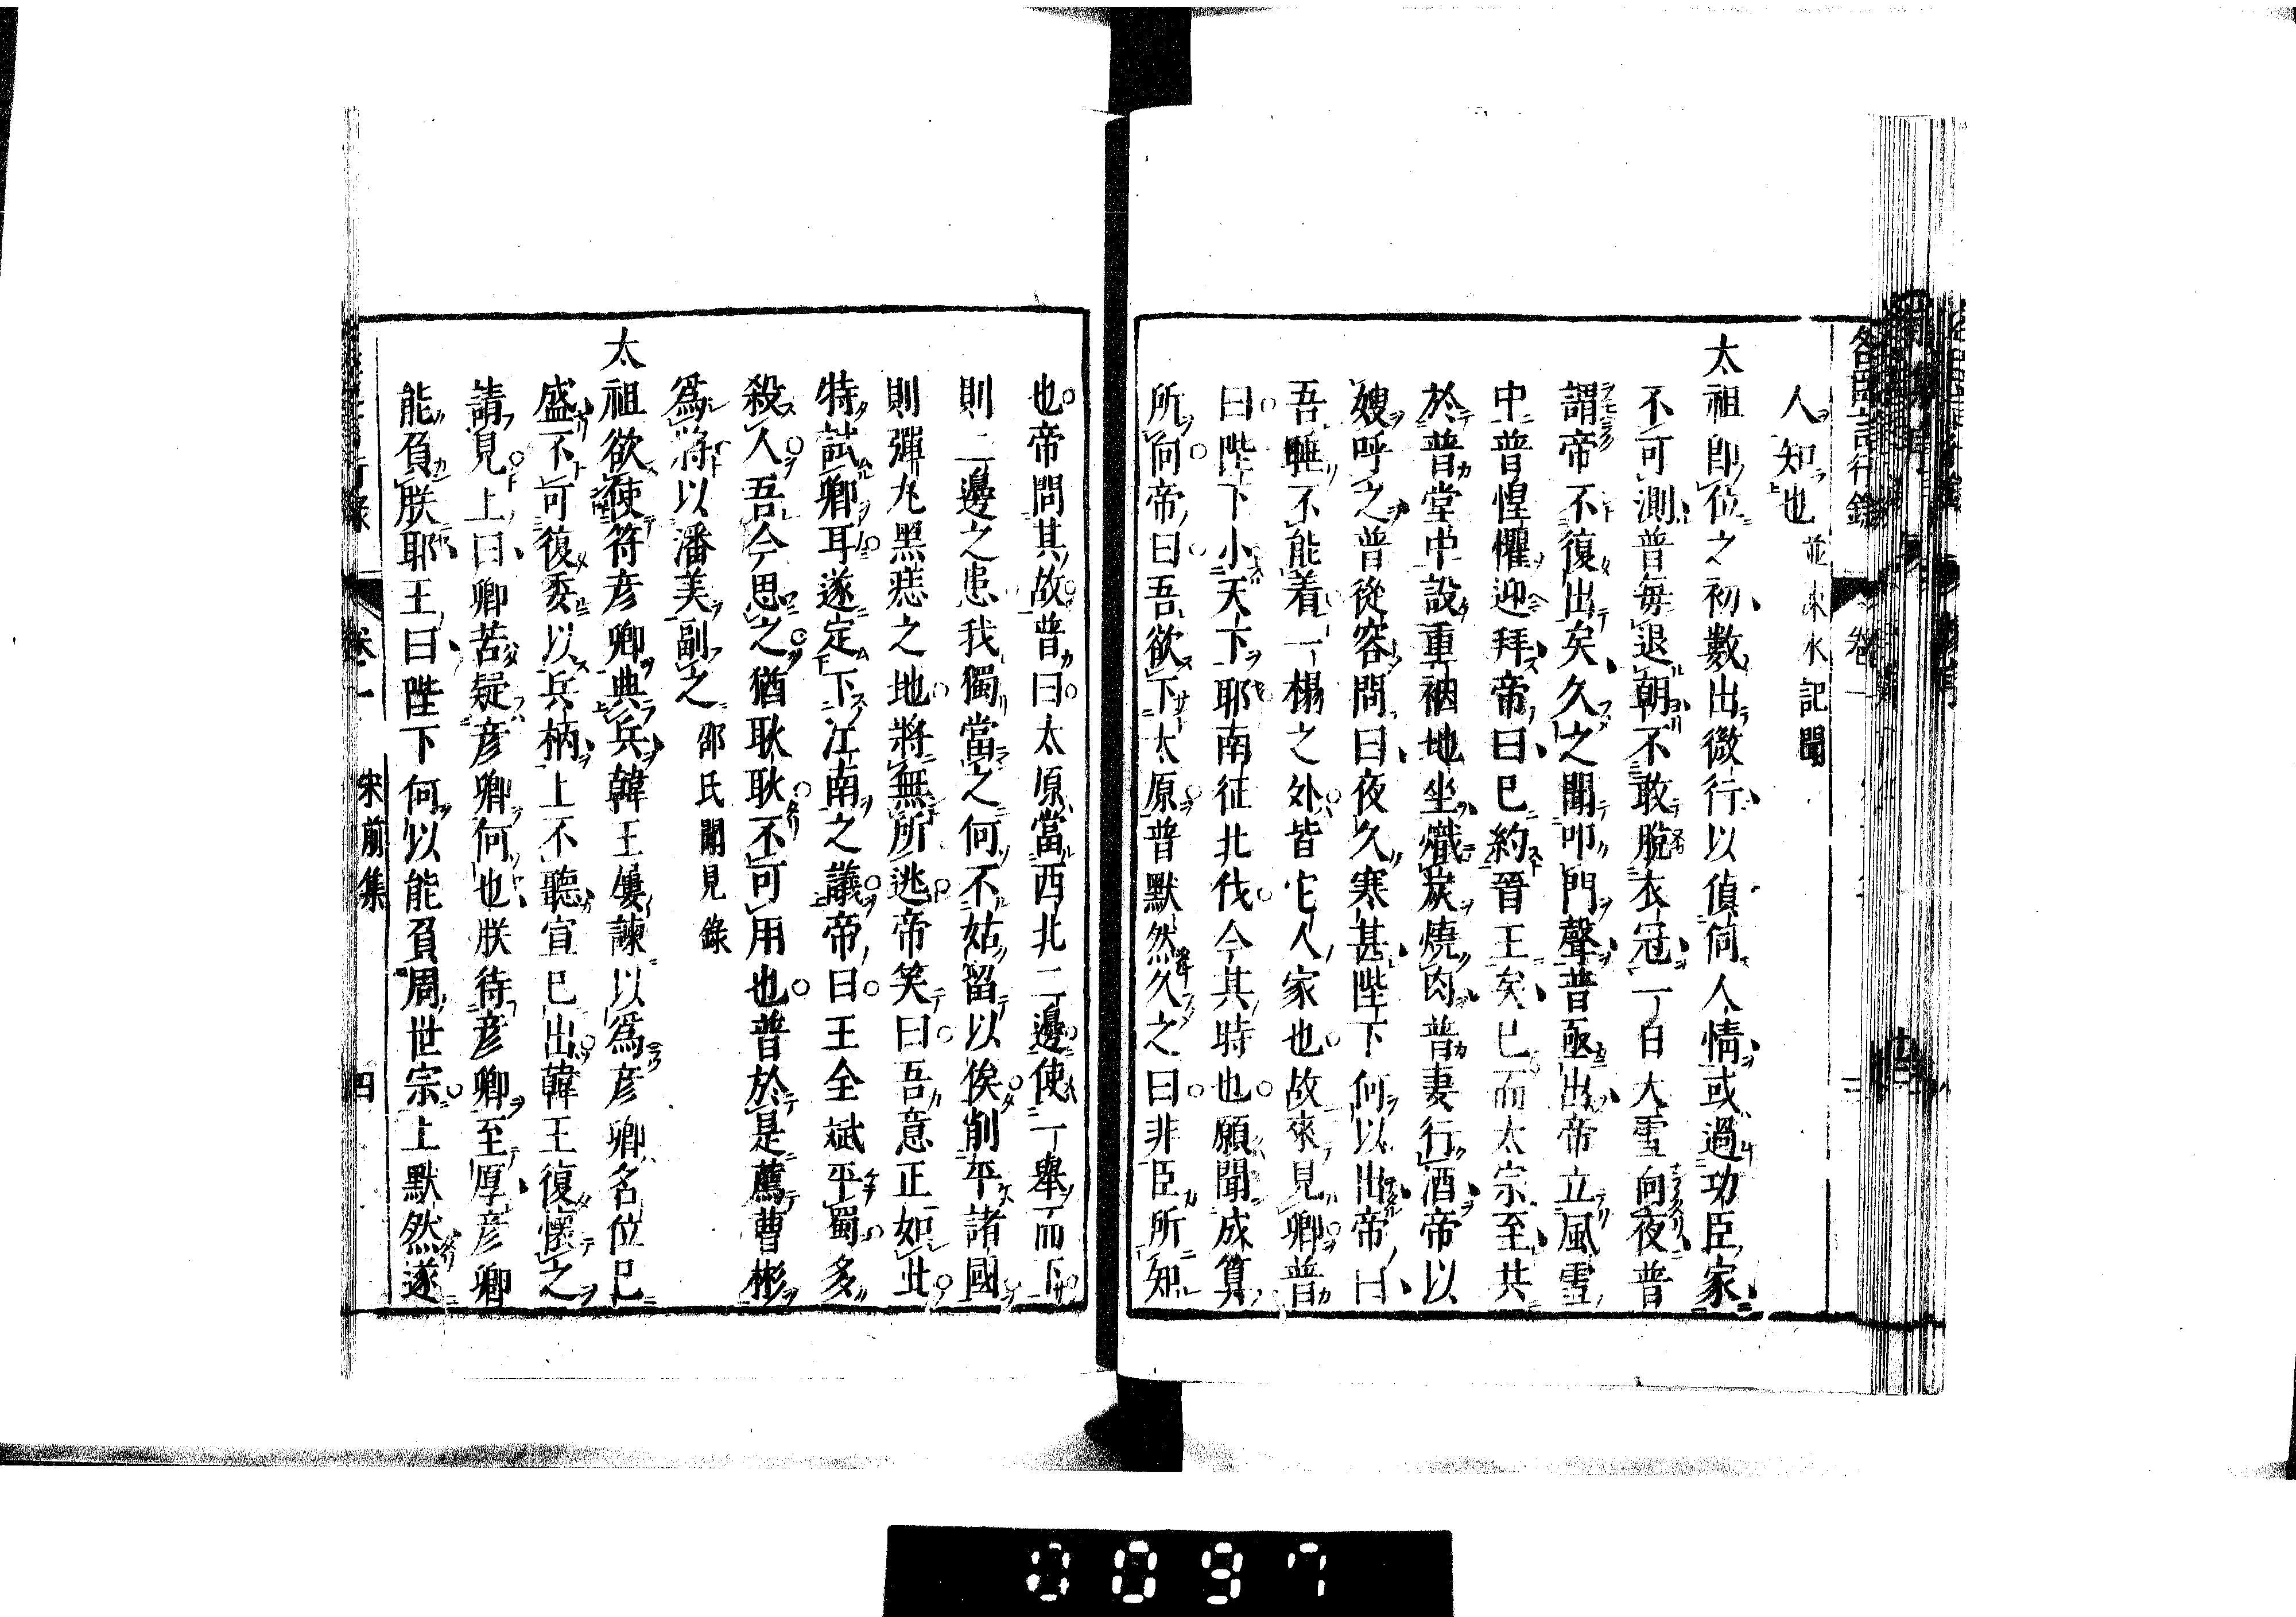 人知也 並涑水記聞
太祖即位之初數出微行以偵伺人情或過功臣家
不可測普每退朝不敢脫衣冠一日大雪向夜普
謂帝不復出矣久之聞叩門聲普亟出帝立風雪
中普惶懼迎拜帝曰已約晉王矣已而太宗至共
於普堂中設重裀地坐熾炭燒肉普妻行酒帝以
嫂呼之普從容問曰夜久寒甚陛下何以出帝曰
吾睡不能着一榻之外皆它人家也故來見卿普
曰陛下小天下耶南征北伐今其時也願聞成算
所向帝曰吾欲下太原普默然久之曰非臣所知
也帝問其故普曰太原當西北二邊使一舉而下
則二邊之患我獨當之何不姑留以俟削平諸國
則彈丸黑痣之地將無所逃帝笑曰吾意正如此
特試卿耳遂定下江南之議帝曰王全斌平蜀多
殺人吾今思之猶耿耿不可用也普於是薦曹彬
爲將以潘美副之 邵氏聞見錄
太祖欲使符彦卿典兵韓王屢諫以爲彦卿名位已
盛不可復委以兵柄上不聽宣已出韓王復懷之
請見上曰卿苦疑彦卿何也朕待彦卿至厚彦卿
能負朕耶王曰陛下何以能負周世宗上默然遂
卷一 宋前集 四
0097